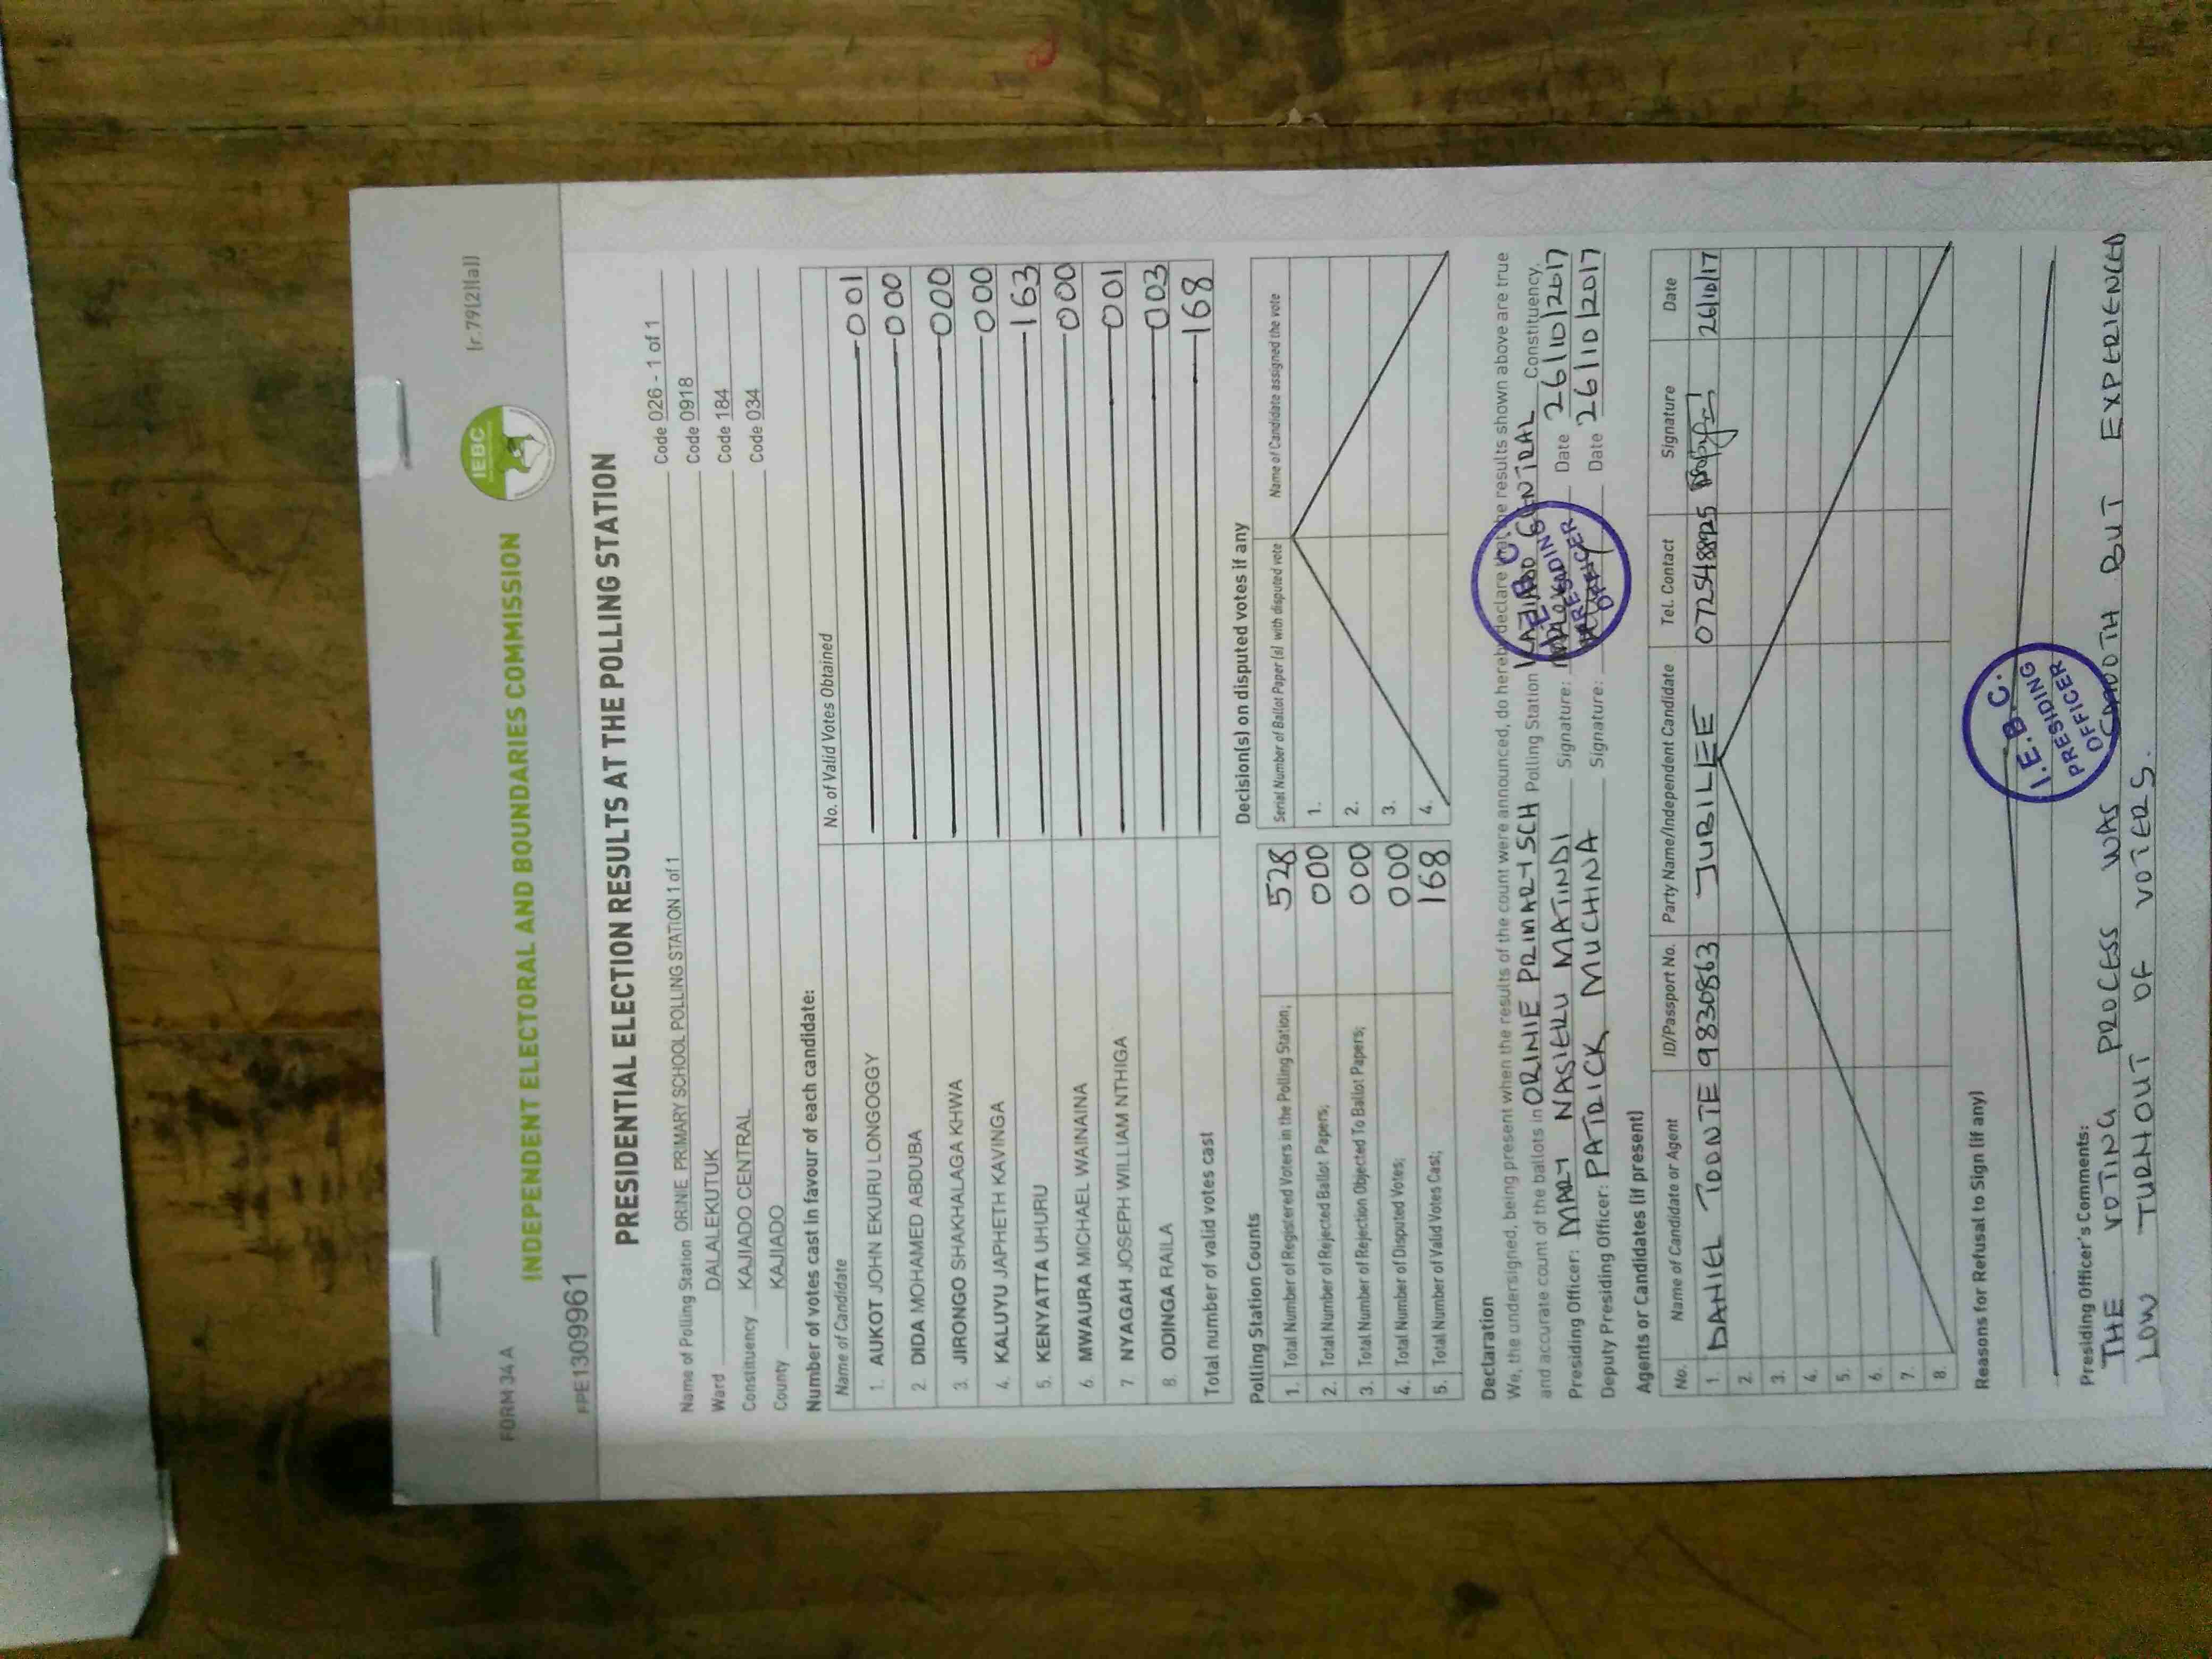 FORM 34 A
INDEPENDENT ELECTORAL AND BOUNDARIES COMMISSION
IEBC
(r.79(2)(a))
PPE1309961
PRESIDENTIAL ELECTION RESULTS AT THE POLLING STATION
Name of Polling Station ORINIE PRIMARY SCHOOL POLLING STATION 1 of 1 Code 026 - 1 of 1
Ward DALALEKUTUK Code 0918
Constituency KAJIADO CENTRAL Code 184
County KAJIADO Code 034
Number of votes cast in favour of each candidate:
Name of Candidate No. of Valid Votes Obtained
1. AUKOT JOHN EKURU LONGOGGY 001
2. DIDA MOHAMED ABDUBA 000
3. JIRONGO SHAKHALAGA KHWA 000
4. KALUYU JAPHETH KAVINGA 000
5. KENYATTA UHURU 163
6. MWAURA MICHAEL WAINAINA 000
7. NYAGAH JOSEPH WILLIAM NTHIGA 001
8. ODINGA RAILA 003
Total number of valid votes cast 168
Polling Station Counts
1. Total Number of Registered Voters in the Polling Station; 528
2. Total Number of Rejected Ballot Papers; 000
3. Total Number of Rejection Objected To Ballot Papers; 000
4. Total Number of Disputed Votes; 000
5. Total Number of Valid Votes Cast; 168
Decision(s) on disputed votes if any
Serial Number of Ballot Paper (s) with disputed vote Name of Candidate assigned the vote
1.
2.
3.
4.
Declaration
We, the undersigned, being present when the results of the count were announced, do hereby declare that the results shown above are true
and accurate count of the ballots in ORINIE PRIMARY SCH Polling Station KAJIADO CENTRAL Constituency.
Presiding Officer: MARY NASIEKU MATINDI Signature: Date 26/10/2017
Deputy Presiding Officer: PATRICK MUCHINA Signature: Date 26/10/2017
I.E.B.C.
PRESIDING
OFFICER
Agents or Candidates (if present)
No. Name of Candidate or Agent ID/Passport No. Party Name/Independent Candidate Tel. Contact Signature Date
1. DANIEL TOONTE 9830863 JUBILEE 0725488925 26/10/17
2.
3.
4.
5.
6.
7.
8.
Reasons for Refusal to Sign (if any)
I.E.B.C.
PRESIDING
OFFICER
Presiding Officer's Comments:
THE VOTING PROCESS WAS SMOOTH BUT EXPERIENCED
LOW TURNOUT OF VOTERS.